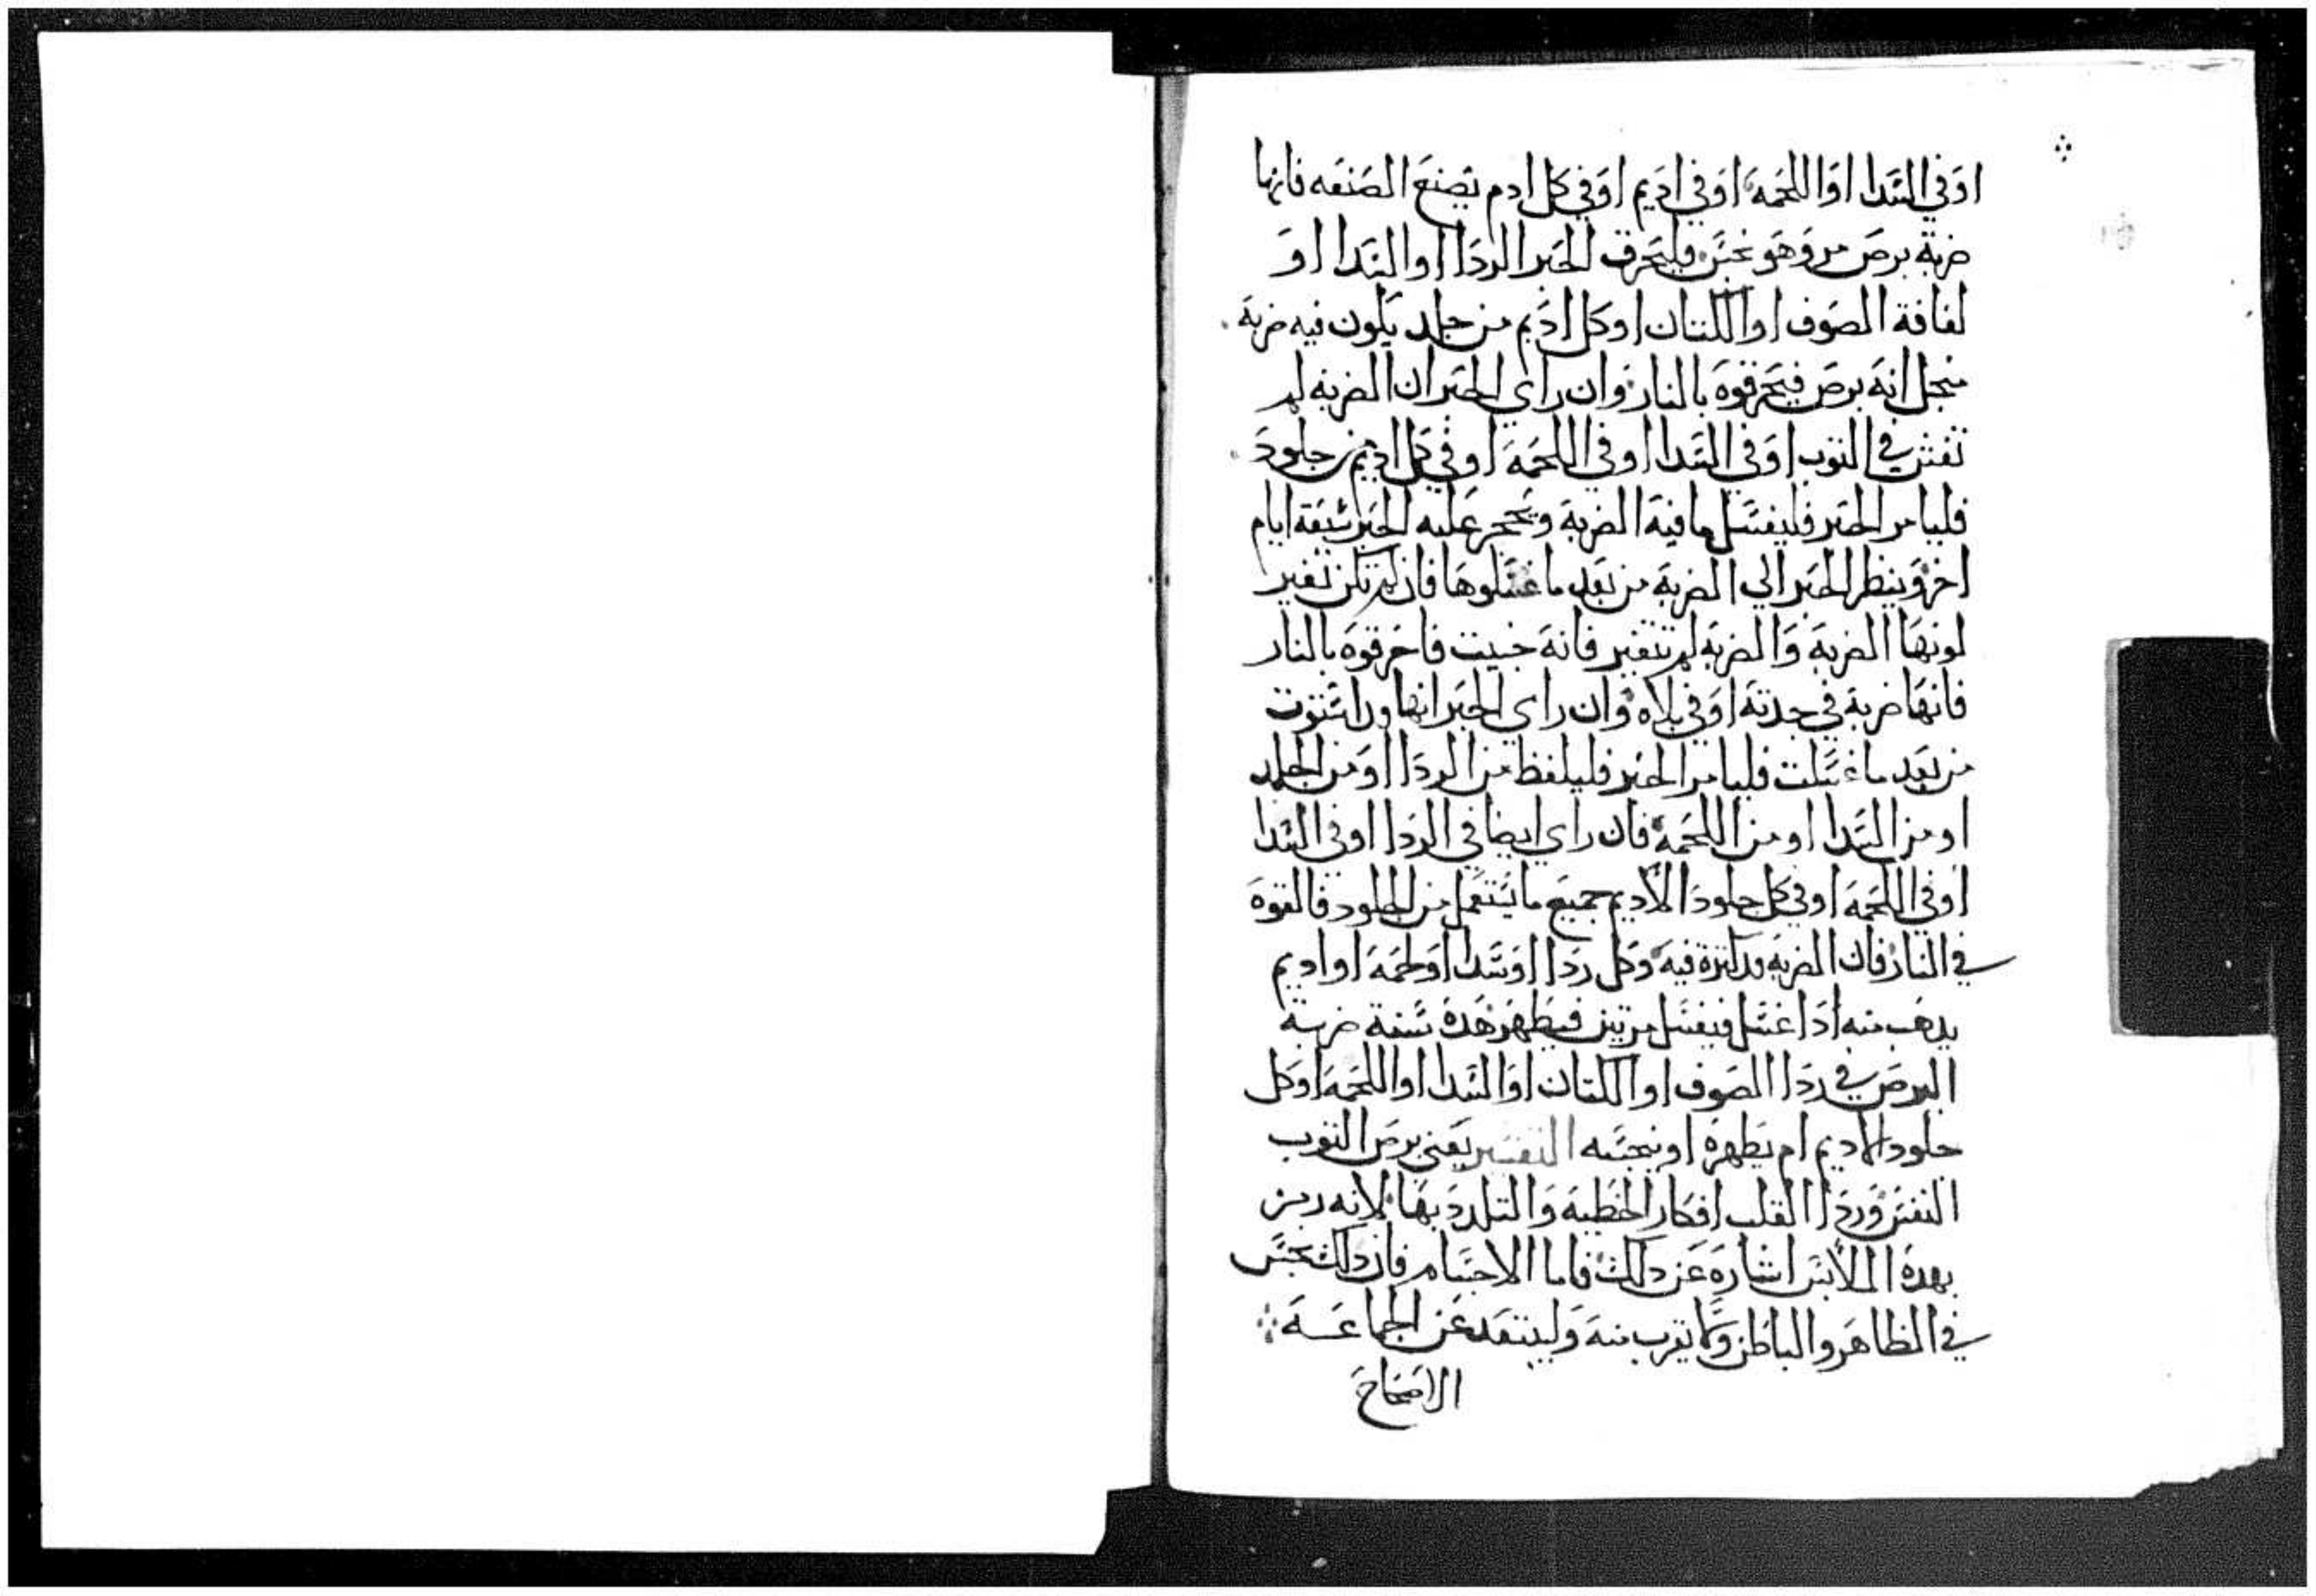 اوفي السدا او اللحمه او في اديم او في كل ادم تصنع الصنعه فانها
ضربة برص مر وهو نجس فليحرق الحبر الردا او السدا او
لفافة الصوف او الكتان او كل اديم من جلد يكون فيه ضربة
منجل انه برص فيحرقوه بالنار وان راي الحبر ان الضربه لم
تفش في الثوب او في السدا او في اللحمه او في كل اديم من جلود
فليامر الحبر فليغسل ما فيه الضربة ويحجر عليه الحبر سبعة ايام
اخر وينظر الحبر الي الضربة من بعد ما غسلوها فان لم تكن تغير
لونها الضربة والضربة لم تتغير فانه خبيث فاحرقوه بالنار
فانها ضربة في جدته او في بلاه وان راى الحبر انها
من بعد ما غسلت فليامر الحبر فليلفظ من الردا او من الجلد
او من السدا او من اللحمه فان راي ايضا في الردا او في السدا
او في اللحمه او في كل جلود الاديم جميع ما يستعمل من الجلود فالقوه
في النار فان الضربه قد كترة فيه وكل ردا او سدا او لحمه او اديم
يدهب منه ادا غسل فيغسل مرتين فيطهر هده سنة ضربة
البرص في ردا الصوف او الكتان او السدا او اللحمه او كل
جلود الاديم ام يطهره او ينجسه التفسير يعني برص الثوب
النفس وردا القلب افكار الخطية والتلدد بها لانه رمز
بهده الملابس اشاره عن دلك فاما الاجسام فان دلك نجس
في الظاهر والباطن ولا يقرب منه وليبتعد عن الجماعــه
الاصحاح